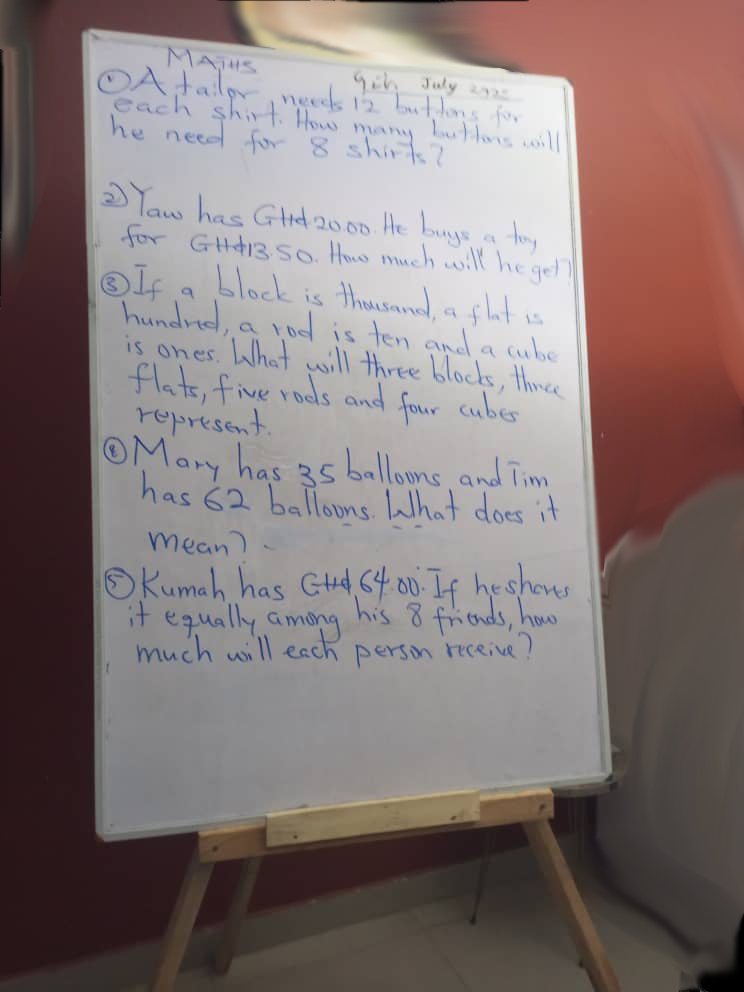 MATHS
9th July
① A tailor needs 12 buttons for
each shirt. How many buttons will
he need for 8 shirts?
② Yaw has GH₵20.00. He buys a toy
for GH₵13.50. How much will he get?
③ If a block is thousand, a flat is
hundred, a rod is ten and a cube
is ones. What will three blocks, three
flats, five rods and four cubes
represent.
④ Mary has 35 balloons and Tim
has 62 balloons. What does it
mean?
⑤ Kumah has GH₵64.00. If he shares
it equally among his 8 friends, how
much will each person receive?